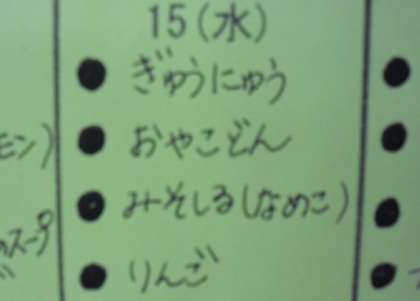 15(水)
●ぎゅうにゅう
●おやこどん
●みそしる(なめこ)
●りんご
モン)
スープ